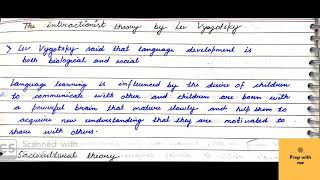 The interactionist theory by Lev Vygotsky
> Lev Vygotsky said that language development is
both biological and social
Language learning is influenced by the desire of children
to communicate with other and children are born with
a powerful brain that mature slowly and help them to
acquire new understanding that they are motivated to
share with others.
CS Scanned with
Sociocultural theory
Prep with
me